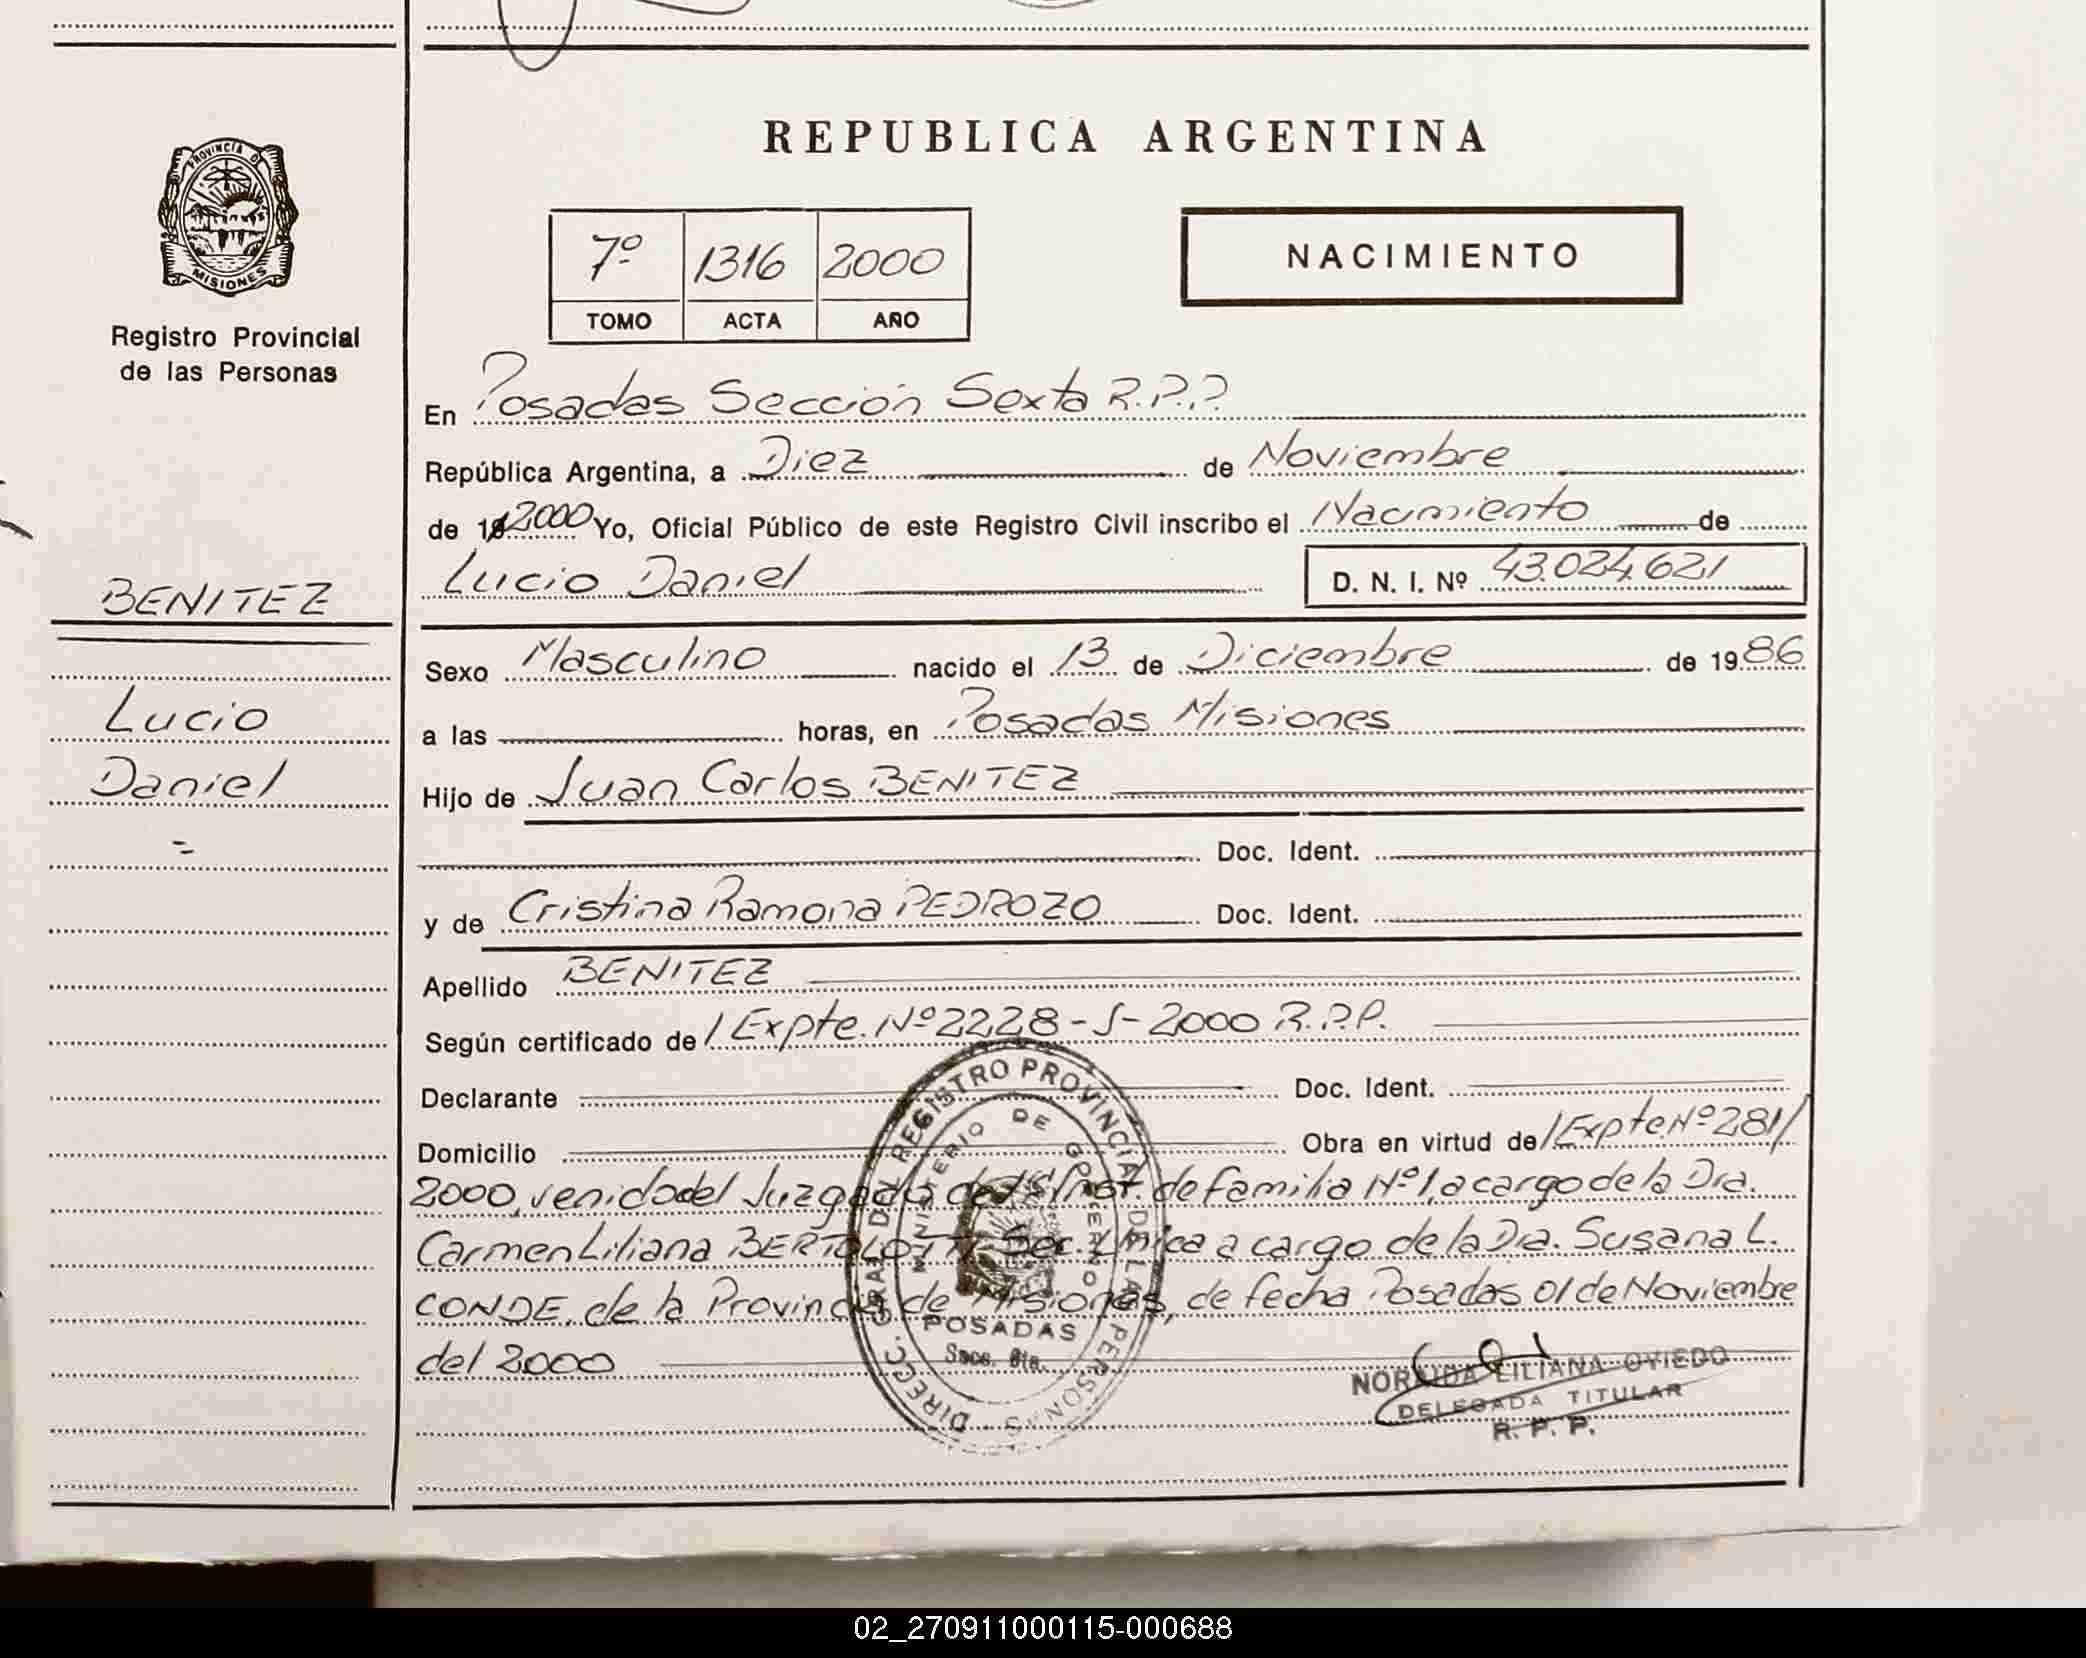 REPUBLICA ARGENTINA
PROVINCIA DE
MISIONES
Registro Provincial
de las Personas
7º 1316 2000
TOMO ACTA AÑO
NACIMIENTO
En Posadas Sección Sexta R.P.P.
República Argentina, a Diez de Noviembre
de 19 2000 Yo, Oficial Público de este Registro Civil inscribo el Nacimiento de
Lucio Daniel D. N. I. Nº 43.024.621
BENITEZ
Lucio
Daniel
=
Sexo Masculino nacido el 13 de Diciembre de 1986
a las horas, en Posadas Misiones
Hijo de Juan Carlos BENITEZ
Doc. Ident.
y de Cristina Ramona PEDROZO Doc. Ident.
Apellido BENITEZ
Según certificado de / Expte. Nº 2228-S-2000 R.P.P.
Declarante Doc. Ident.
Domicilio Obra en virtud de / Expte Nº 281/
2000, venido del Juzgado de Inst. de familia Nº 1, a cargo de la Dra.
Carmen Liliana BERTOLOTTI, Sec. Unica a cargo de la Dra. Susana L.
CONDE, de la Provincia de Misiones, de fecha Posadas 01 de Noviembre
del 2000
DIRECC. GRAL DEL REGISTRO PROVINCIAL DE LAS PERSONAS
MINISTERIO DE GOBIERNO
POSADAS
Secc. 6ta.
LILIANA OVIEDO
DELEGADA TITULAR
R. P. P.
02_270911000115-000688